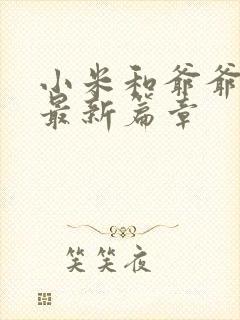 小米和爷爷
最新篇章
笑笑夜